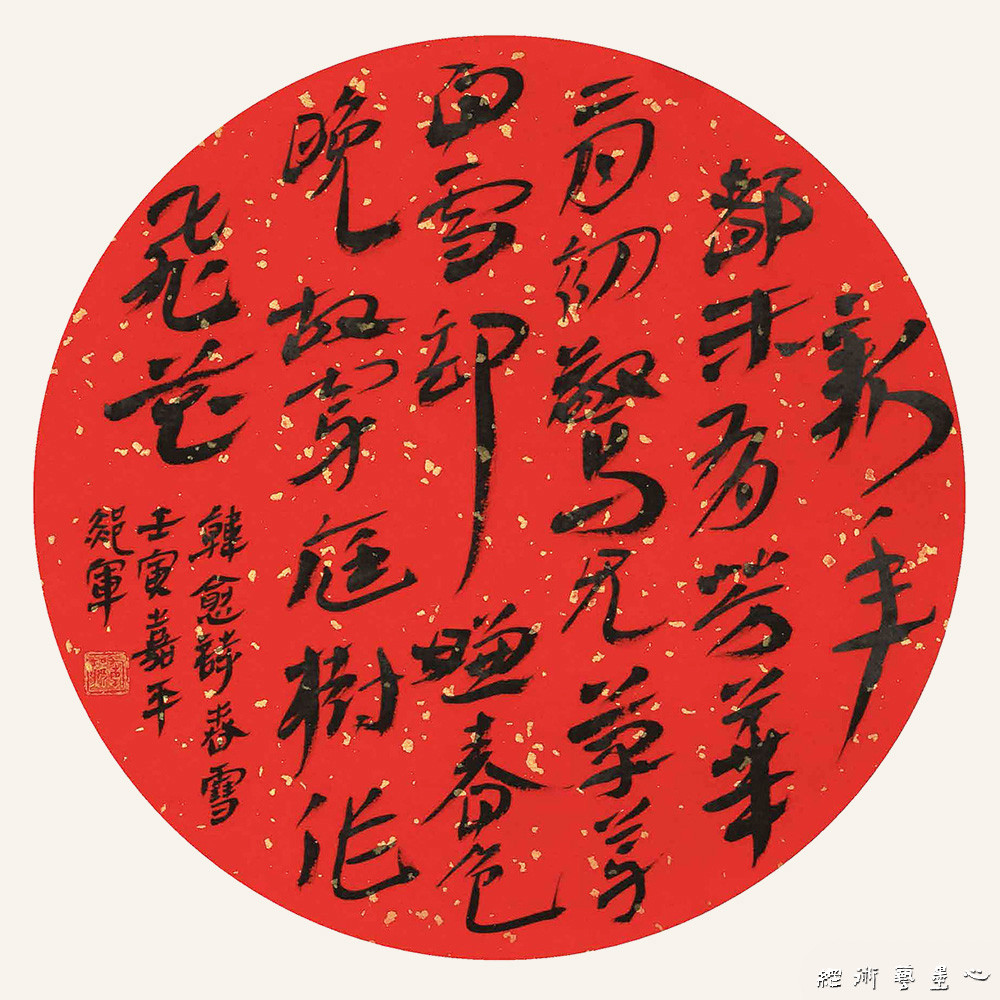 新年
都未有芳華
二月初驚見草芽
白雪却嫌春色
晚故穿庭樹作
飛花
韓愈詩春雪
壬寅嘉平
軍
心藝術